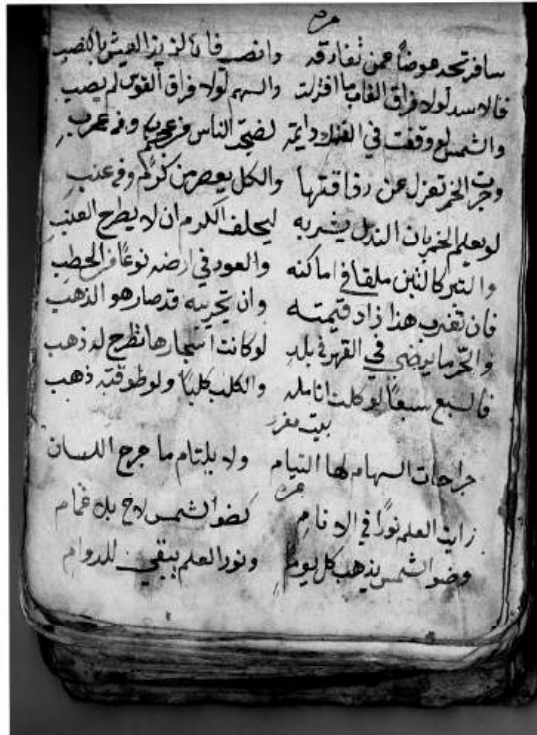 سافر تجد عوضا عمن تفارقه وانصب فان لذيذ العيش بالنصب
فالاسد لولا فراق الغاب ما افترست والسهم لولا فراق القوس لم يصب
والشمس لو وقفت في الفلك دايمة لضجت الناس من عجم ومن عرب
الخمر تعزل عن رفاقتها والكل يعصر من كرم ومن عنب
لو يعلم الخمر بان النذل يشربه ليحلف الكرم ان لا يطرح العنب
والتبر كالتبن ملقا في اماكنه والعود في ارضه نوعا من الحطب
فان تغرب هذا زاد قيمته وان تجي به قد صار هو الذهب
والحر ما يرضي في القهر في بلد لو كانت اشجارها تطرح له ذهب
فالسبع سبعا لو كلت انامله والكلب كلبا ولو طوقته ذهب
بيت مفرد
جراحات السهام لها التيام ولا يلتام ما جرح اللسان
رايت العلم نورا في الانام كضو الشمس لاح بلا غمام
وضو الشمس يذهب كل يوم ونور العلم يبقى للدوام